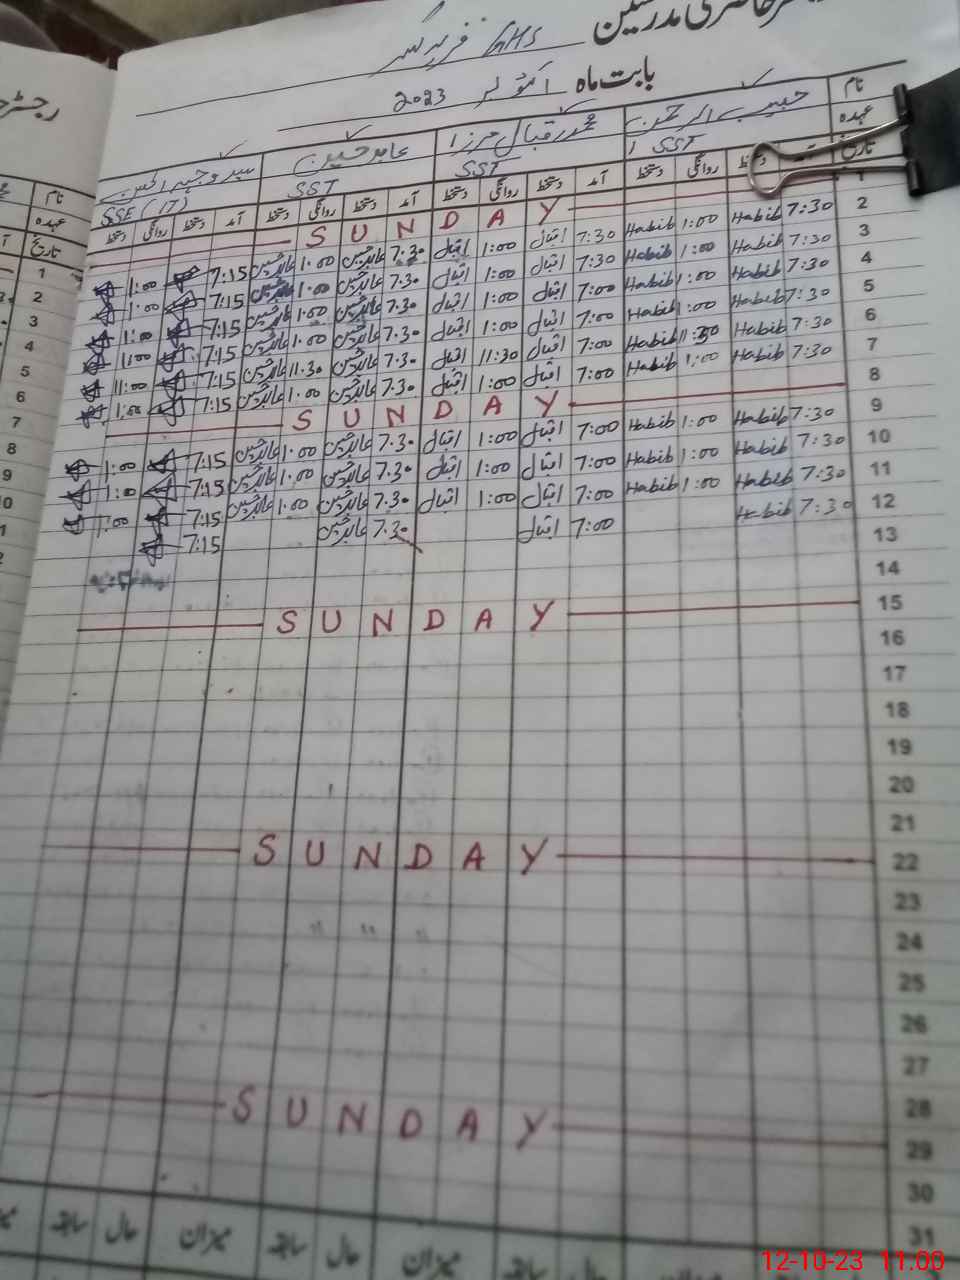 رجسٹر حاضری مدرسین
GHS
بابت ماہ اکتوبر 2023
نام حبیب الرحمن محمد اقبال مرزا عابد حسین
عہدہ SST SST SST SSE (IT)
تاریخ آمد دستخط روانگی دستخط آمد دستخط روانگی دستخط آمد دستخط روانگی دستخط آمد دستخط روانگی دستخط
1 S U N D A Y
2 7:30 Habib 1:00 Habib 7:30 اقبال 1:00 اقبال 7.30 عابد حسین 1.00 عابد حسین 7:15 1:00
3 7:30 Habib 1:00 Habib 7:30 اقبال 1:00 اقبال 7.30 عابد حسین 1.00 عابد حسین 7:15 1:00
4 7:30 Habib 1:00 Habib 7:00 اقبال 1:00 اقبال 7.30 عابد حسین 1.00 عابد حسین 7:15 1:00
5 7:30 Habib 1:00 Habib 7:00 اقبال 1:00 اقبال 7.30 عابد حسین 1.00 عابد حسین 7:15 11:00
6 7:30 Habib Habib 7:00 اقبال 11:30 اقبال 7.30 عابد حسین 11.30 عابد حسین 7:15 11:00
7 7:30 Habib 1:00 Habib 7:00 اقبال 1:00 اقبال 7.30 عابد حسین 1.00 عابد حسین 7:15 1:00
8 S U N D A Y
9 7:30 Habib 1:00 Habib 7:00 اقبال 1:00 اقبال 7.30 عابد حسین 1.00 عابد حسین 7:15 1:00
10 7:30 Habib 1:00 Habib 7:00 اقبال 1:00 اقبال 7.30 عابد حسین 1.00 عابد حسین 7:15 1:00
11 7:30 Habib 1:00 Habib 7:00 اقبال 1:00 اقبال 7.30 عابد حسین 1.00 عابد حسین 7:15 1:00
12 7:30 Habib 7:00 اقبال 7.30 عابد حسین 7:15
13
14
15 S U N D A Y
16
17
18
19
20
21
22 S U N D A Y
23
24
25
26
27
28
29 S U N D A Y
30
31
میزان حال سابقہ میزان حال سابقہ
رجسٹر
نام
عہدہ
تاریخ
1
2
3
4
5
6
7
8
9
12-10-23 11.00